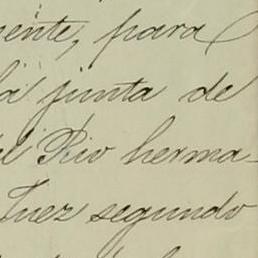 ente, para
la junta de
el Rio herma-
Juez segundo